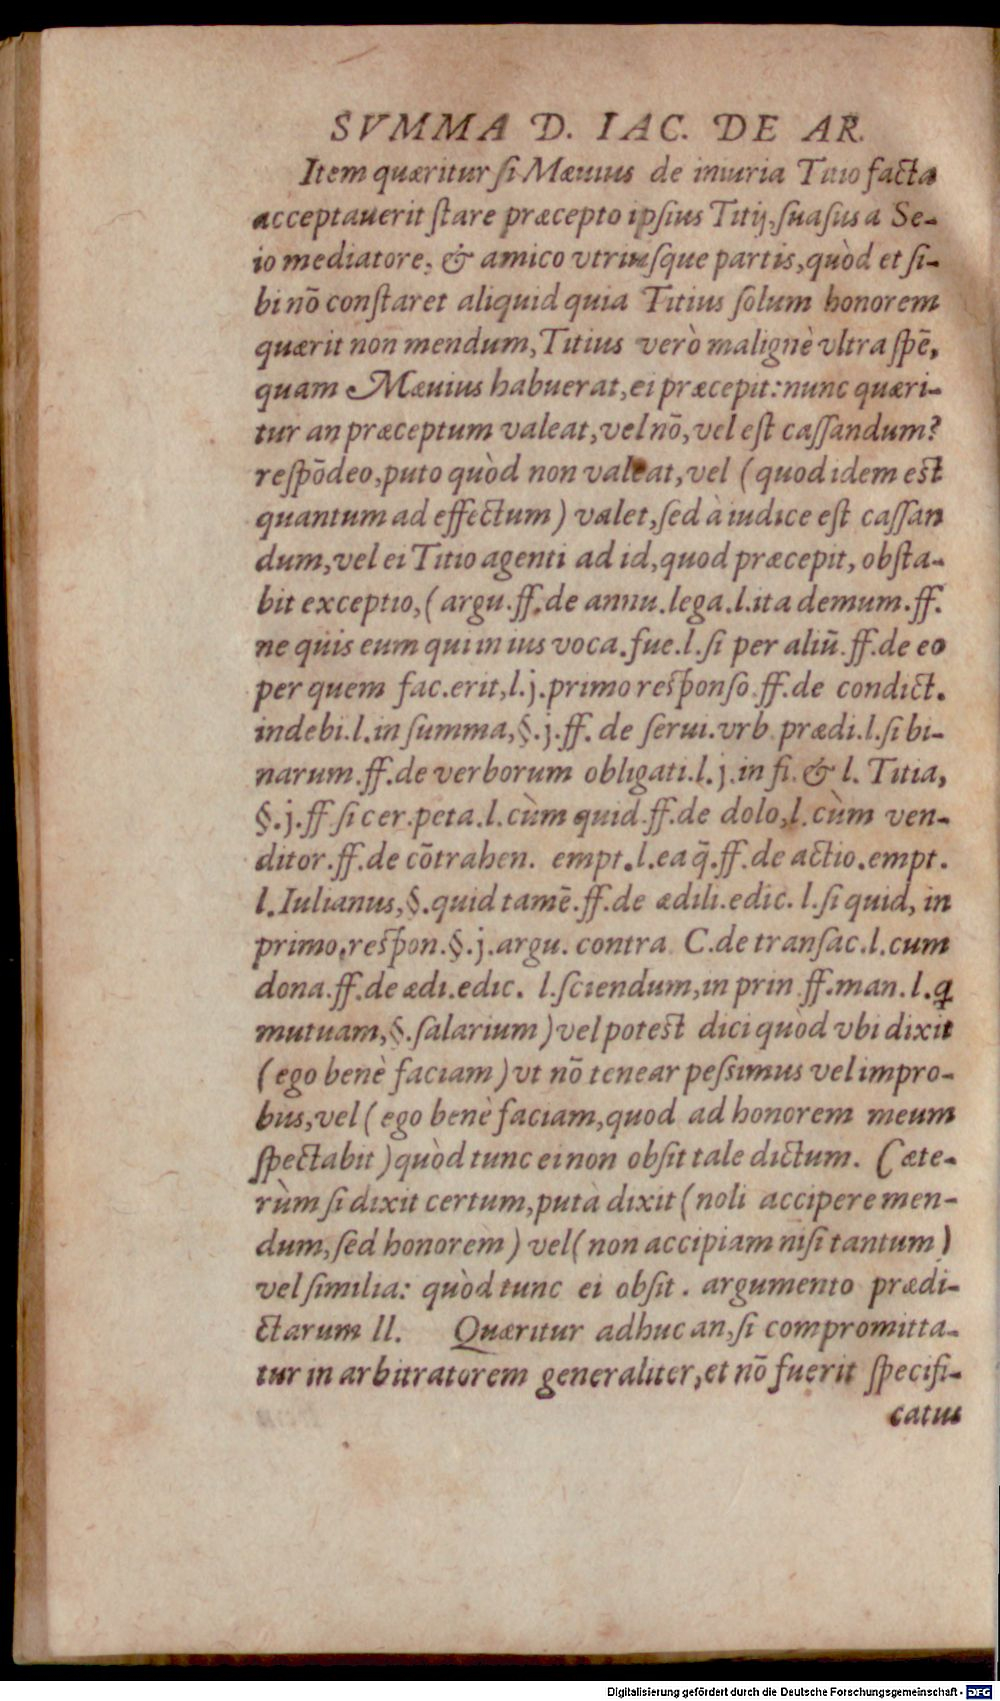 SVMMA D. IAC. DE AR.
Item quæritur si Mæuius de iniuria Titio facta
acceptauerit stare præcepto ipsius Titij, suasus a Se-
io mediatore, & amico vtriusque partis, quòd et si-
bi nō constaret aliquid quia Titius solum honorem
quærit non mendum, Titius verò malignè vltra spē,
quam Mæuius habuerat, ei præcepit: nunc quæri-
tur an præceptum valeat, vel nō, vel est cassandum?
respōdeo, puto quòd non valeat, vel (quod idem est
quantum ad effectum) valet, sed à iudice est cassan
dum, vel ei Titio agenti ad id, quod præcepit, obsta-
bit exceptio, (argu.ff.de annu.lega.l.ita demum.ff.
ne quis eum qui in ius voca.fue.l.si per aliū.ff.de eo
per quem fac.erit, l.j.primo responso.ff.de condict.
indebi.l.in summa, §.j.ff. de serui.vrb.prædi.l.si bi-
narum.ff.de verborum obligati.l.j.in fi. & l. Titia,
§.j.ff si cer.peta.l.cùm quid.ff.de dolo, l.cùm ven-
ditor.ff.de cōtrahen. empt.l.ea q̄.ff.de actio.empt.
l.Iulianus, §.quid tamē.ff.de ædili.edic. l.si quid, in
primo, respon.§.j.argu. contra C.de transac.l.cum
dona.ff.de ædi.edic. l.sciendum, in prin ff.man.l.q
mutuam, §.salarium) vel potest dici quòd vbi dixit
(ego benè faciam) vt nō tenear pessimus vel impro-
bus, vel (ego benè faciam, quod ad honorem meum
spectabit) quòd tunc ei non obsit tale dictum. Cæte-
rùm si dixit certum, putà dixit (noli accipere men-
dum, sed honorem) vel (non accipiam nisi tantum)
vel similia: quòd tunc ei obsit. argumento prædi-
ctarum ll. Quæritur adhuc an, si compromitta-
tur in arbitratorem generaliter, et nō fuerit specifi-
catus
Digitalisierung gefördert durch die Deutsche Forschungsgemeinschaft - DFG